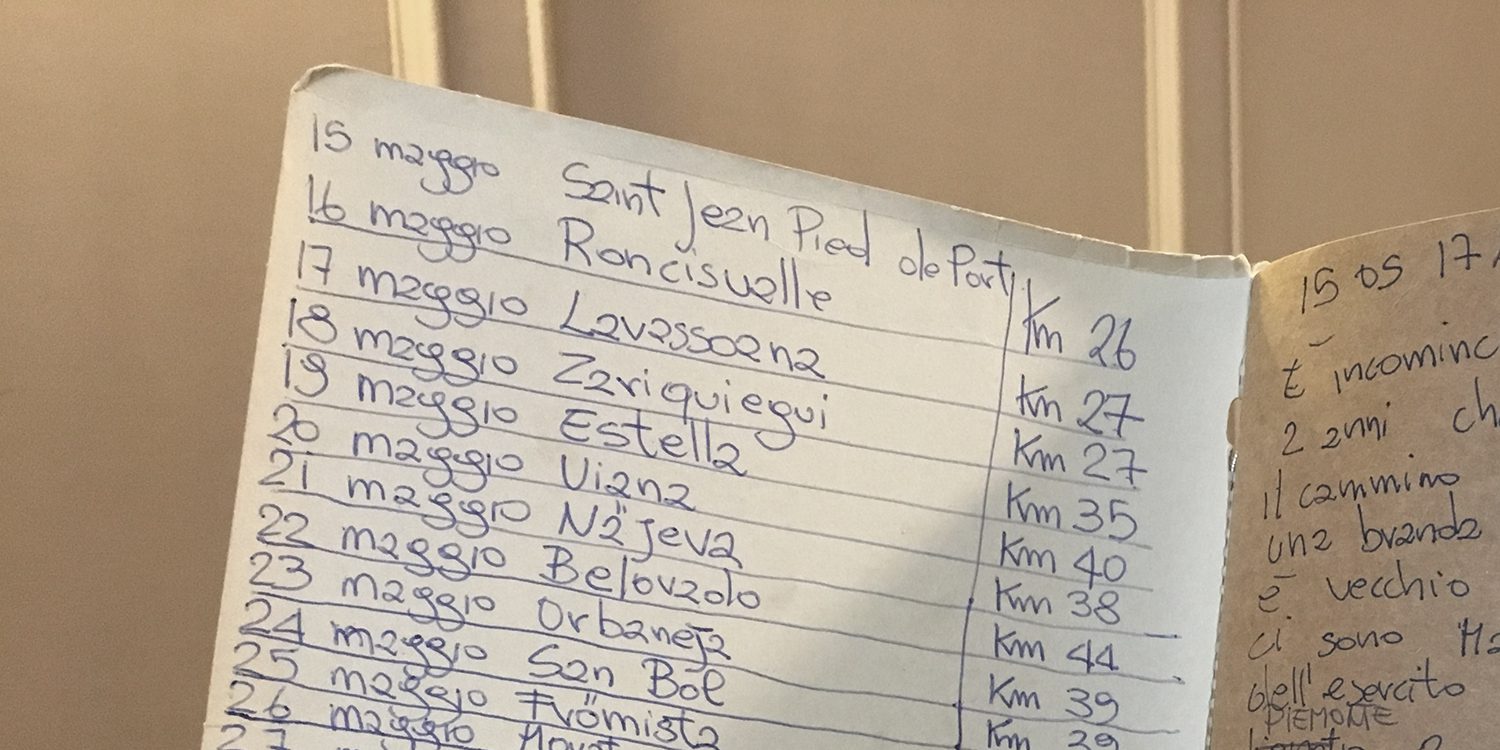 15 maggio Saint Jean Pied de Port
16 maggio Roncisvalle Km 26
17 maggio Lavassoana Km 27
18 maggio Zariquiegui Km 27
19 maggio Estella Km 35
20 maggio Viana Km 40
21 maggio Näjeva Km 38
22 maggio Belovado Km 44
23 maggio Orbaneja Km 39
24 maggio San Bol Km 39
25 maggio Frömista
26 maggio
27
15 05 17
È incominc
2 anni ch
il cammino
una branda
è vecchio
ci sono Ma
dell'esercito
PIEMONTE